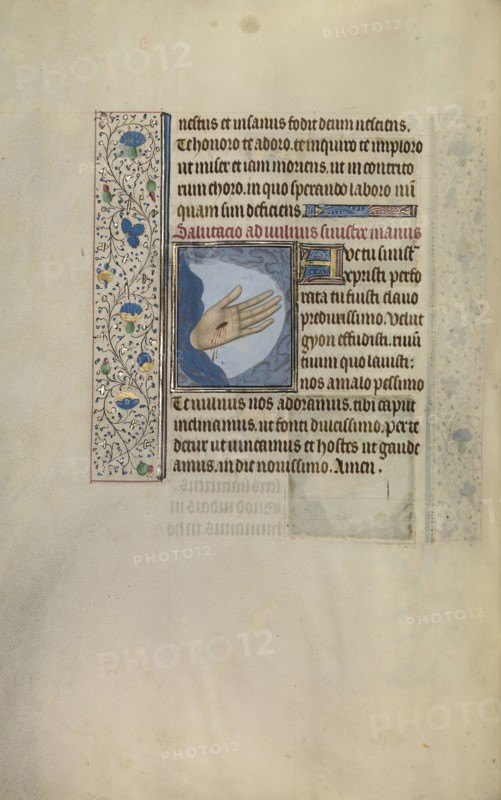 nestus et insanus fodit deum nesciens.
Te honoro te adoro. te inquiro te imploro
ut miser et iam moriens. ut in contrito
rum choro. in quo sperando laboro nū
quam sim deficiens
Salutacio ad vulnus sinistre manus
Ave tu sinistra
xpristi perfo
rata tu fuisti clavo
predurissimo. Velut
gyon effudisti. rivū
tuum quo lavisti:
nos a malo pessimo
Te vulnus nos adoramus. tibi caput
inclinamus. ut fonti dulcissimo. per te
detur ut vincamus et hostes ut gaude
amus. in die novissimo. Amen.
PHOTO12